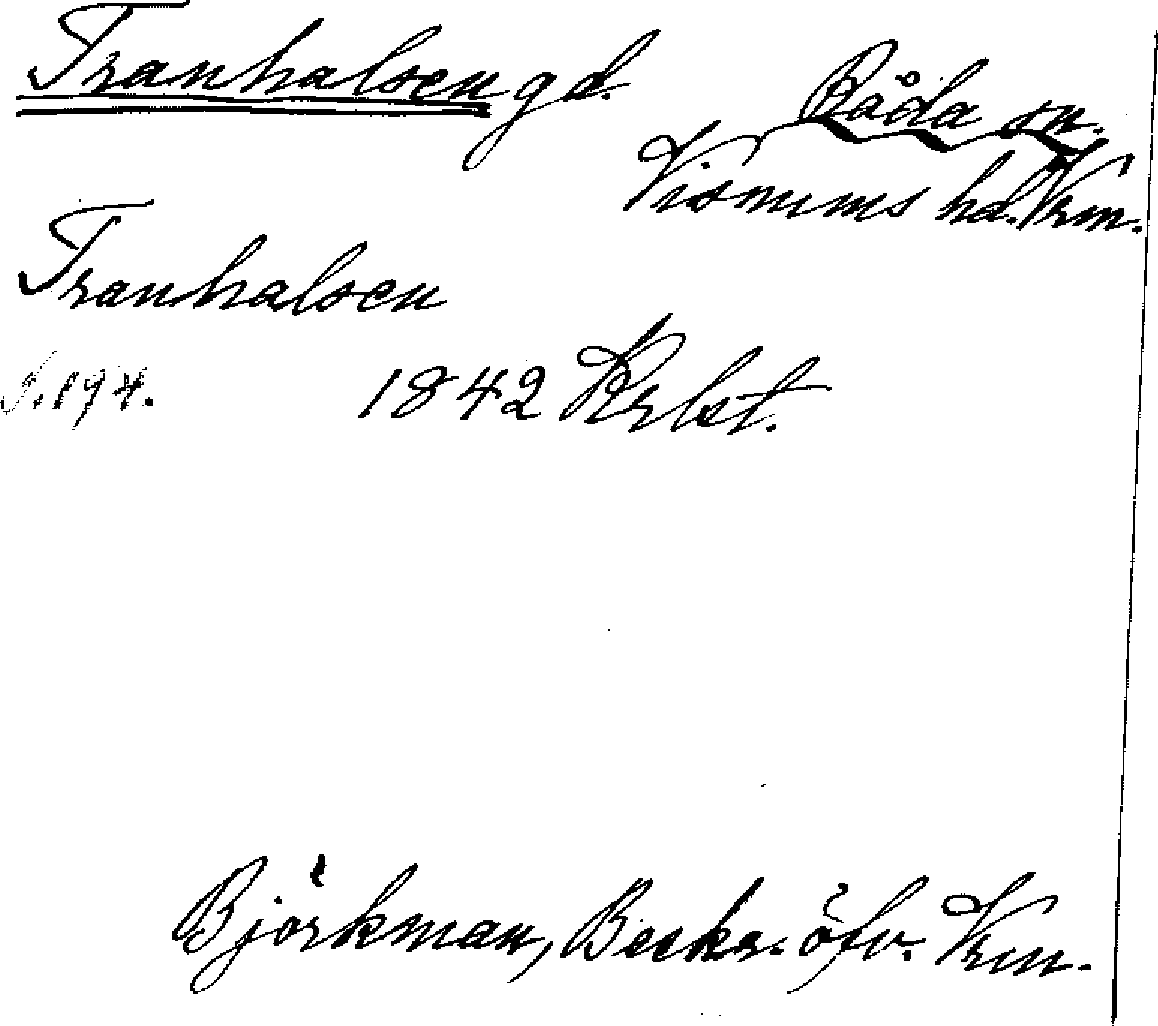 Tranhalsen gd.
Råda sn.
Visnums hd. Vrm.
Tranhalsen
S. 194.
1842 Krbst.
Björkman, Beskr. öfv. Vrm.